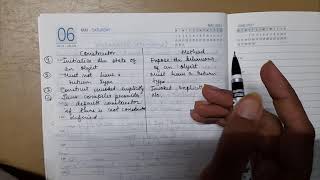 06
MAY - SATURDAY
Constructor Method
① Initialize the state of Expose the behaviour
an object of an object
② Must not have a Must have a return
return type type
③ Construct invoked implicitly Invoked
④ Java compiler provides No.
a default constructor
if there is not constructor
defined